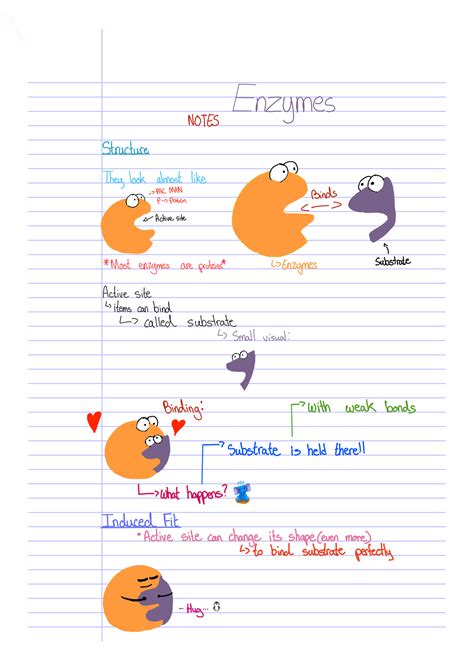 Enzymes
NOTES
Structure
They look almost like
↳ PAC MAN
P → Protein
Active site
Binds
↳ Enzymes
Substrate
*Most enzymes are proteins*
Active site
↳ items can bind
↳ called substrate
↳ Small visual:
Binding:
↳ With weak bonds
↳ Substrate is held there!!
↳ What happens?
Induced Fit
*Active site can change its shape (even more)
↳ to bind substrate perfectly
- Hug...